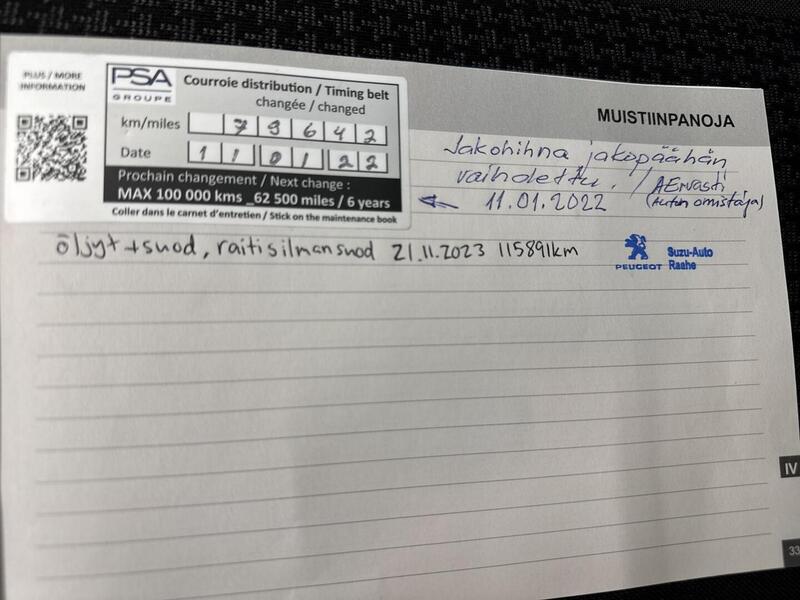 PLUS / MORE
INFORMATION
PSA
GROUPE
Courroie distribution / Timing belt
changée / changed
km/miles 79642
Date 11 01 22
Prochain changement / Next change :
MAX 100 000 kms _62 500 miles / 6 years
Coller dans le carnet d'entretien / Stick on the maintenance book
MUISTIINPANOJA
Jakohihna jakopäähän
vaihdettu. / AErvasti
11.01.2022 (Auton omistaja)
öljyt+suod, raitisilmansuod 21.11.2023 115891km
PEUGEOT
Suzu-Auto
Raahe
IV
33